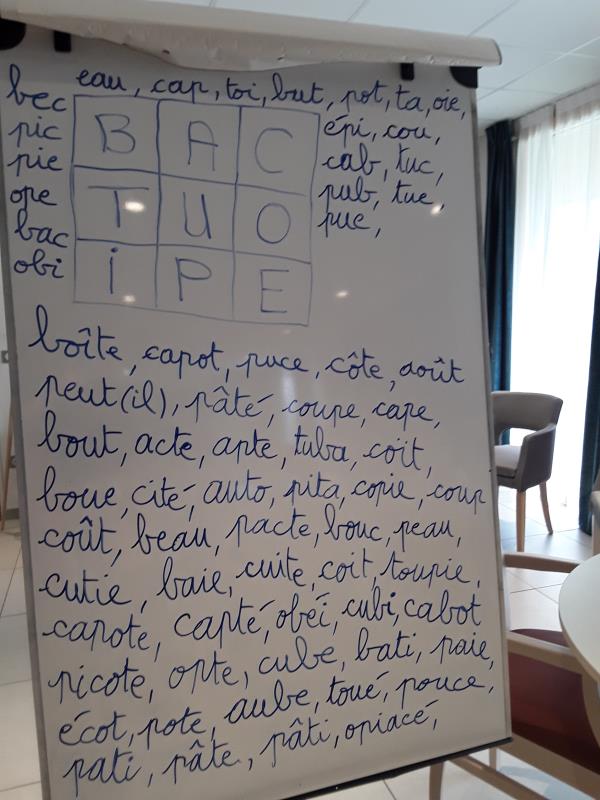 eau, cap, toi, but, pot, ta, oie,
bec
pic
pie
ope
bac
obi
B A C
T U O
i P E
épi, cou,
cab, tuc,
pub, tue,
puc,
boîte, capot, puce, côte, août
peut(il), pâté, coupe, cape,
bout, acte, apte, tuba, coït,
boue, cité, auto, pita, copie, coup
coût, beau, pacte, bouc, peau,
cutie, baie, cuite, coit, toupie,
capote, capté, obéi, cubi, cabot
picote, opte, cube, bati, paie,
écot, pote, aube, toué, pouce,
pati, pâte, pâti, opiacé,